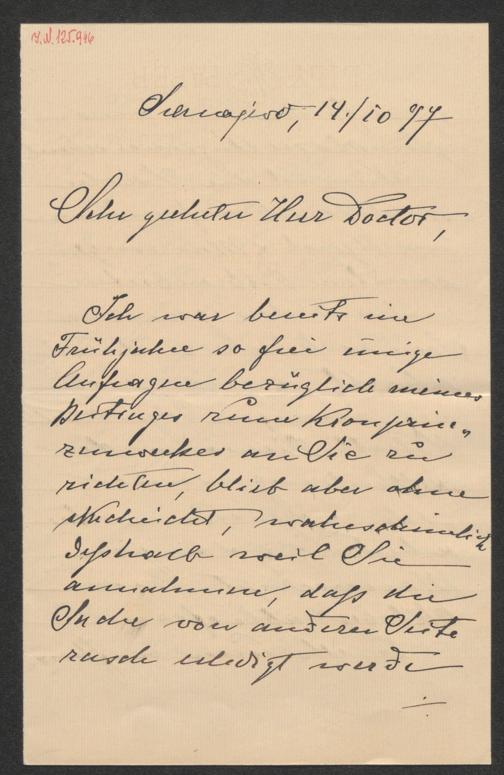 J.N. 125.946
Sarajevo, 14./10 97
Sehr geehrter Herr Doctor,
Ich war bereits im
Frühjahre so frei einige
Anfragen bezüglich meines
Beitrages zum Kronprin-
zenwerkes an Sie zu
richten, blieb aber ohne
Nachricht, wahrscheinlich
deßhalb weil Sie
annahmen, daß die
Sache von anderer Seite
rasch erledigt werde